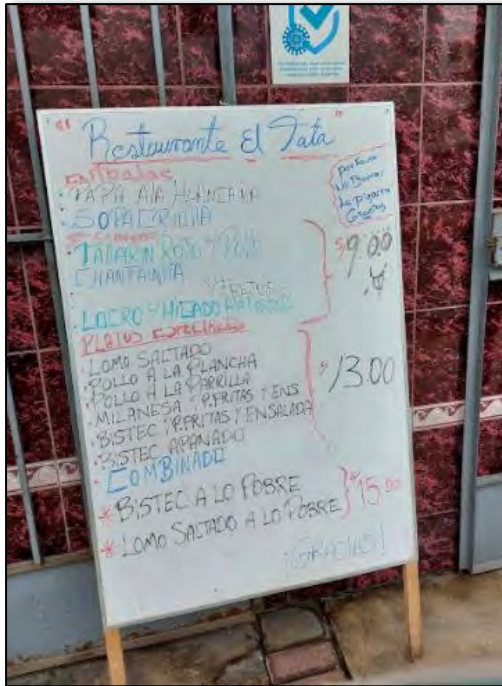 "Restaurante El Tata"
Entradas
Por Favor
No Borrar
La pizarra
Gracias
. PAPA A LA HUANCAINA
. SOPA CRIOLLA
TALLARIN ROJO Y POLLO
CHANFAINITA
S/ 9.00
. LOCRO Y HIGADO
PLATOS ESPECIALES
. LOMO SALTADO
. POLLO A LA PLANCHA
. POLLO A LA PARRILLA
. MILANESA P.FRITAS Y ENS
. BISTEC P.FRITAS Y ENSALADA
. BISTEC APANADO
S/ 13.00
. COMBINADO
* BISTEC A LO POBRE
* LOMO SALTADO A LO POBRE
S/ 15.00
¡GRACIAS!